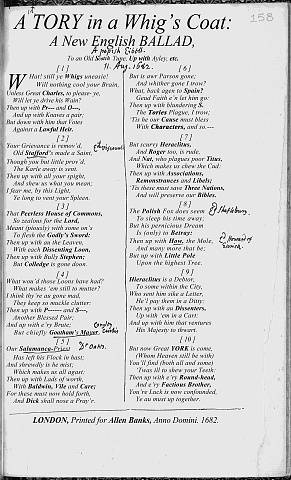 158
A TORY in a Whig's Coat:
A New English BALLAD,
To an Old South Tune, Up with Ayley, etc.
11. Aug. 1682.
[ 1 ]
WHat! still ye Whigs uneasie!
Will nothing cool your Brain,
Unless Great Charles, to please-ye,
Will let ye drive his Wain?
Then up with
And up with Knaves a pair;
But down with him that Votes
Against a Lawful Heir.
[ 2 ]
Your Grievance is remov'd,
Old Stafford's made a Saint,
Though you but little prov'd,
The Karle away is sent.
Then up with all your spight,
And shew us what you mean;
I fear me, by this Light,
Ye long to vent your Spleen.
[ 3 ]
That Peerless House of Commons,
So zealous for the Lord,
Meant (piously) with some on's
To flesh the Godly's Sword:
Then up with 'em the Leaven,
With each Dissenting Loon,
Then up with Bully Stephen;
But Colledge is gone doon.
[ 4 ]
What won'd those Loons have had?
What makes 'em still to mutter?
I think they're au gone mad,
They keep so muckle clutter:
Then up with P------ and S---,
Another Blessed Pair;
And up with e'ry Brute;
But chiefly Gootham's Mayor.
[ 5 ]
Our Salamanca-Priest
Has left his Flock in hast;
And shrewdly is he mist;
Which makes us all agast:
Then up with Lads of worth,
With Baldwin, Vile and Care;
For these must now hold forth,
And Dick shall nose a Pray'r.
[ 6 ]
But is awr Parson gone;
And whither gone I trow?
What, back agen to Spain?
Geud Faith e'n let him go:
Then up with blundering S.
The Tories Plague, I trow;
'Tis he our Cause must bless
With Characters, and so.---
[ 7 ]
But scurvy Heraclitus,
And Roger too, is rude,
And Nat, who plagues poor Titus,
Which makes us chew the Cud:
Then up with Associations,
Remonstrances and Libels;
'Tis these must save Three Nations,
And will preserve our Bibles.
[ 8 ]
The Polish Fox does seem
To sleep his time away;
But his pernicious Dream
Is (only) to Betray:
Then up with How, the Mole,
And mony more that be;
But up with Little Pole
Upon the highest Tree.
[ 9 ]
Heraclitus is a Debtor,
To some within the City,
Who sent him sike a Letter,
He'l pay them in a Ditty:
Then up with au Dissenters,
Up with 'em in a Cart:
And up with him that ventures
His Majesty to thwart.
[ 10 ]
But now Great YORK is come,
(Whom Heaven still be with)
You'l find (both all and some)
'Twas ill to shew your Teeth:
Then up with e'ry Round-head,
And e'ry Factious Brother,
You're Luck is now confounded,
Ye au must up together.
LONDON, Printed for Allen Banks, Anno Domini. 1682.